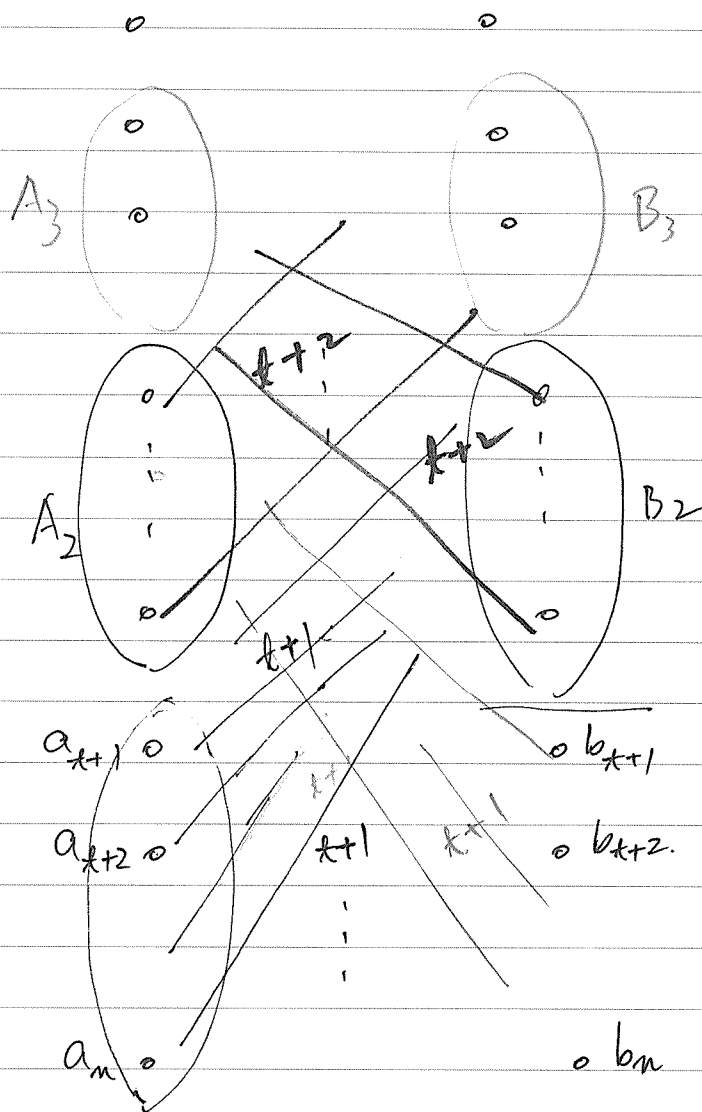 A₃ B₃
t+2
t+2
A₂ B₂
t+1
aₜ₊₁ bₜ₊₁
t+1
aₜ₊₂ t+1 bₜ₊₂.
aₙ bₙ